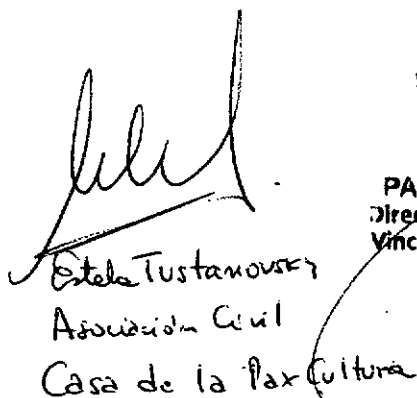 PA
Direc
Vinc
Estela Tustanovsky
Asociación Civil
Casa de la Pax Cultura